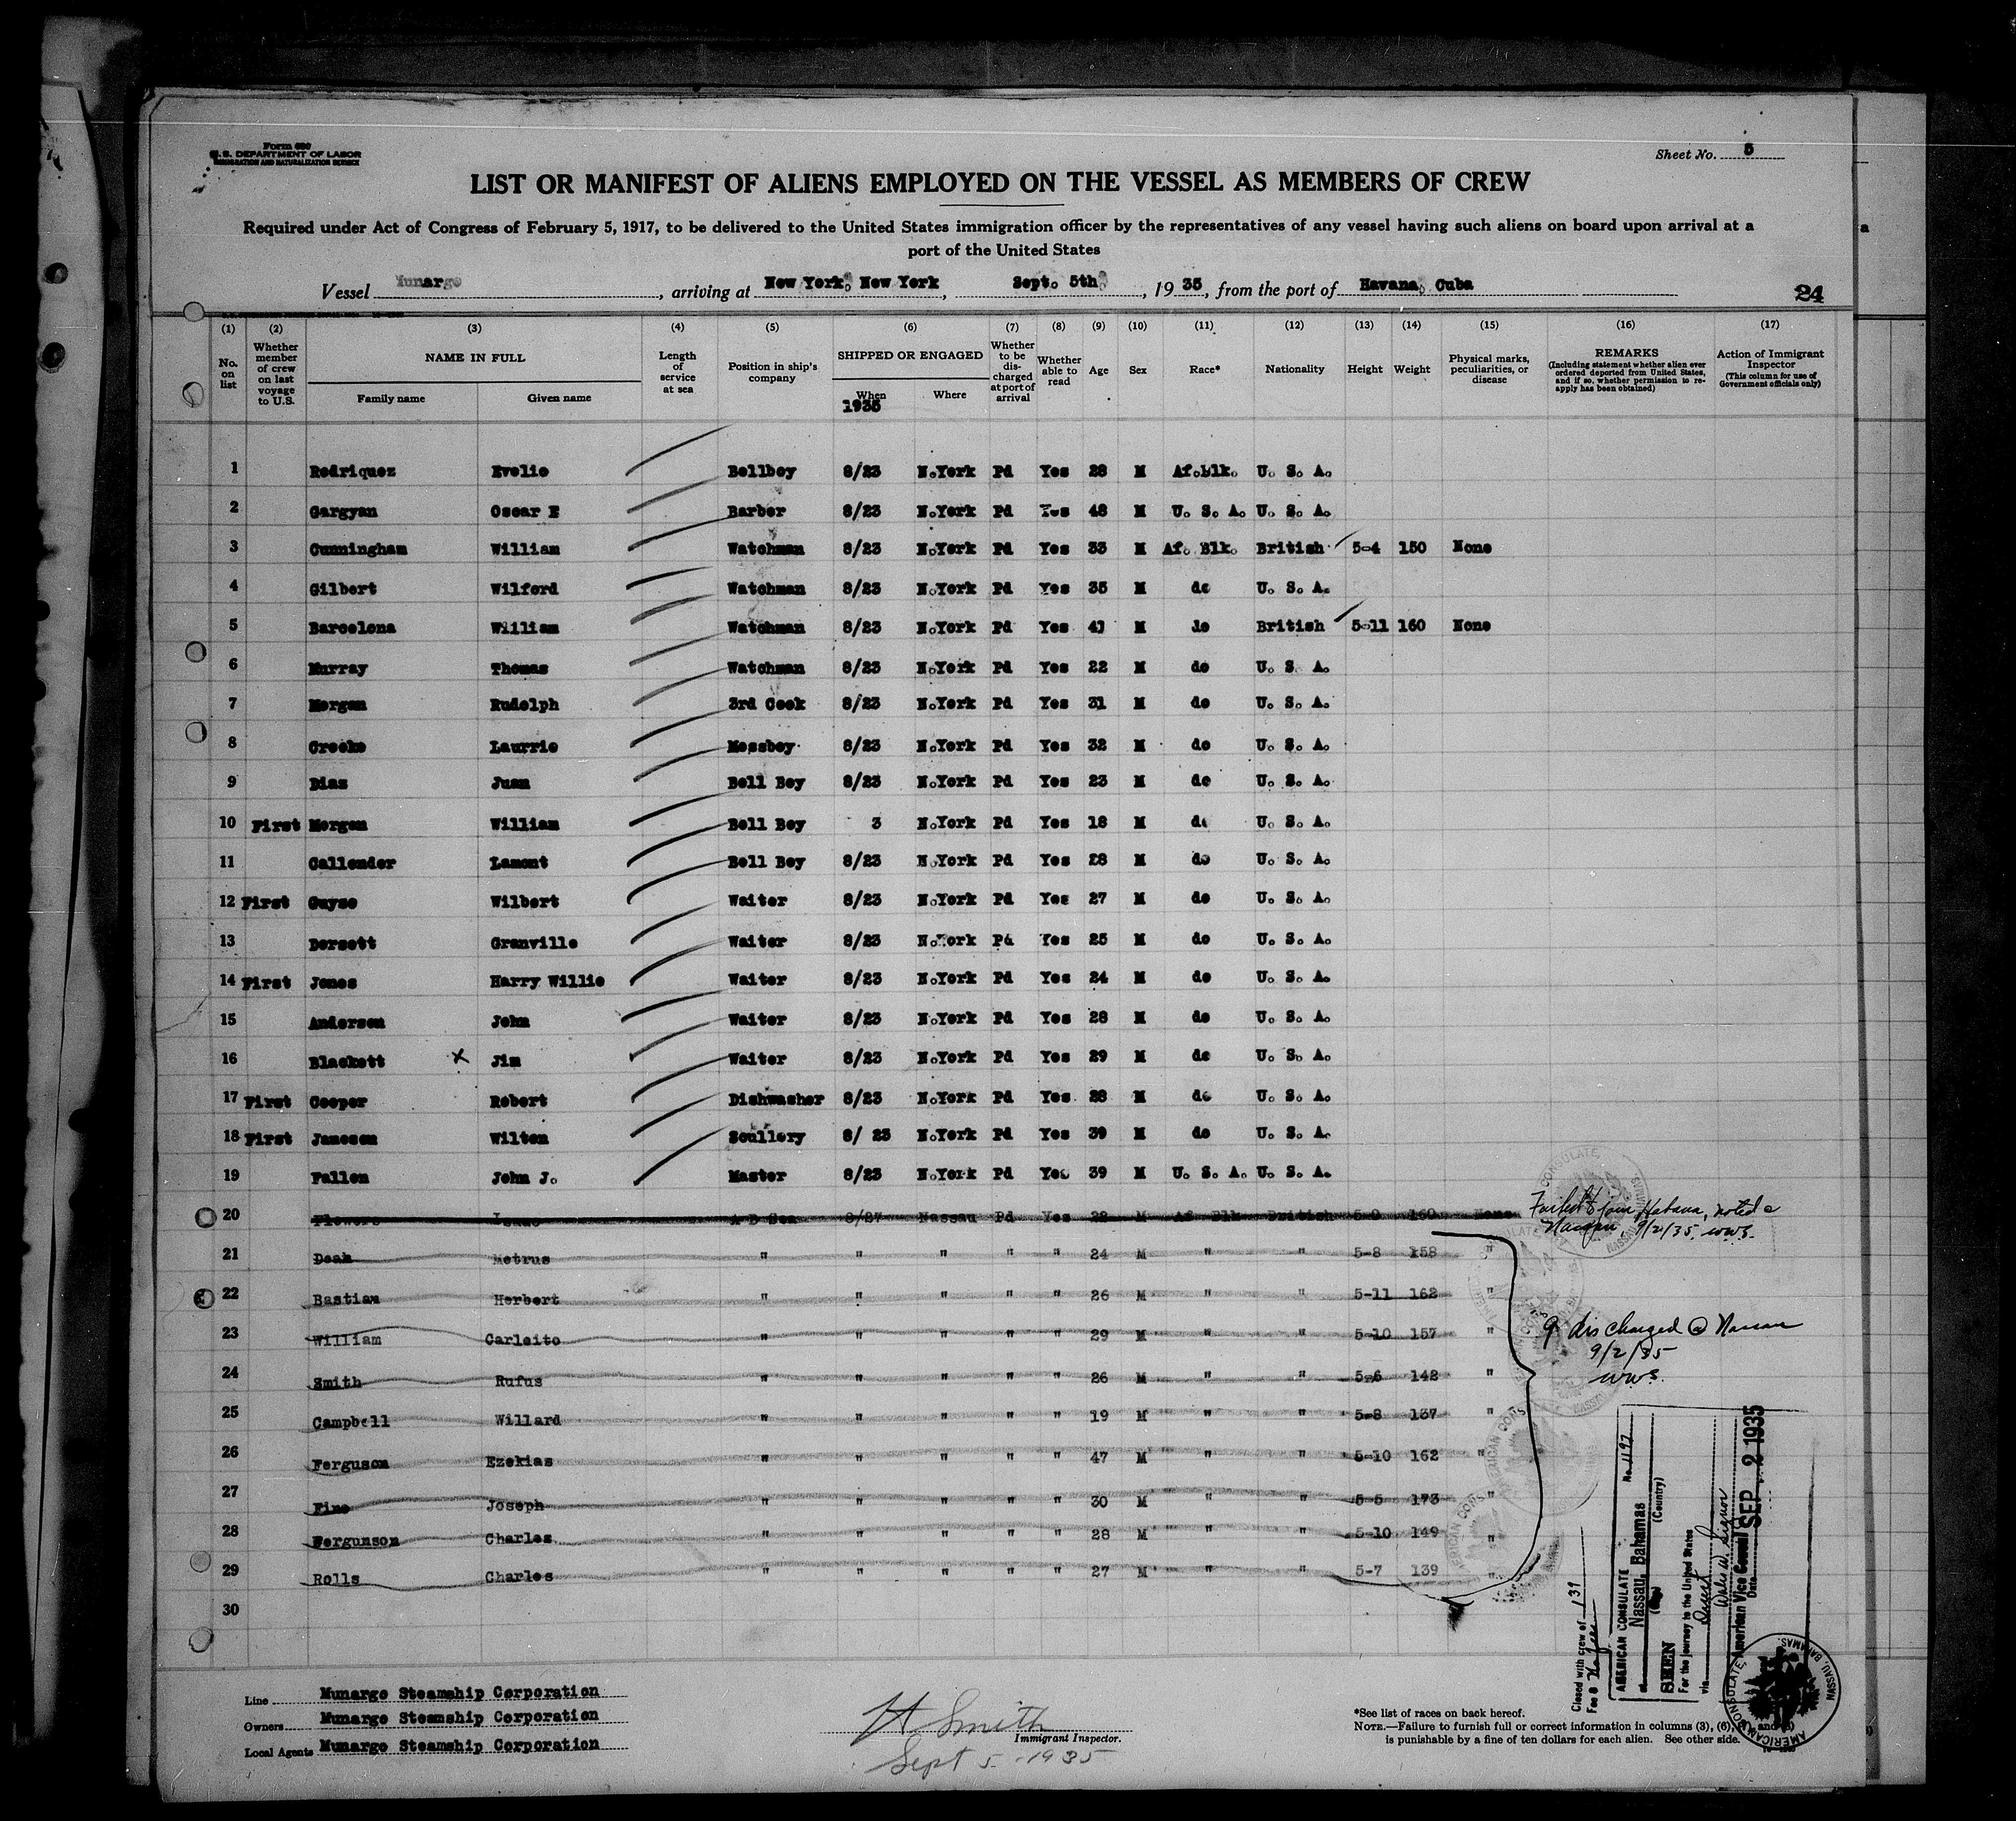 Form 680
U.S. DEPARTMENT OF LABOR
IMMIGRATION AND NATURALIZATION SERVICE
Sheet No. 5
LIST OR MANIFEST OF ALIENS EMPLOYED ON THE VESSEL AS MEMBERS OF CREW
Required under Act of Congress of February 5, 1917, to be delivered to the United States immigration officer by the representatives of any vessel having such aliens on board upon arrival at a
port of the United States
Vessel Munargo, arriving at New York, New York, Sept. 5th, 1935, from the port of Havana, Cuba
24
(1) (2) (3) (4) (5) (6) (7) (8) (9) (10) (11) (12) (13) (14) (15) (16) (17)
No. on list
Whether member of crew on last voyage to U.S.
NAME IN FULL
Family name Given name
Length of service at sea
Position in ship's company
SHIPPED OR ENGAGED
When Where
1935
Whether to be discharged at port of arrival
Whether able to read
Age
Sex
Race*
Nationality
Height
Weight
Physical marks, peculiarities, or disease
REMARKS
(Including statement whether alien ever ordered deported from United States, and if so, whether permission to re-apply has been obtained)
Action of Immigrant Inspector
(This column for use of Government officials only)
1 Rodriquez Evelio Bellboy 8/23 N.York Pd Yes 28 M Af.blk. U. S. A.
2 Gargyan Oscar E Barber 8/23 N.York Pd Yes 48 M U. S. A. U. S. A.
3 Cunningham William Watchman 8/23 N.York Pd Yes 33 M Af. Blk. British 5-4 150 None
4 Gilbert Wilford Watchman 8/23 N.York Pd Yes 35 M do U. S. A.
5 Barcelona William Watchman 8/23 N.York Pd Yes 41 M do British 5-11 160 None
6 Murray Thomas Watchman 8/23 N.York Pd Yes 22 M do U. S. A.
7 Morgan Rudolph 3rd Cook 8/23 N.York Pd Yes 31 M do U. S. A.
8 Crooke Laurrie Messboy 8/23 N.York Pd Yes 32 M do U. S. A.
9 Diaz Juan Bell Boy 8/23 N.York Pd Yes 23 M do U. S. A.
10 First Morgan William Bell Boy 3 N.York Pd Yes 18 M do U. S. A.
11 Callender Lamont Bell Boy 8/23 N.York Pd Yes 28 M do U. S. A.
12 First Guyse Wilbert Waiter 8/23 N.York Pd Yes 27 M do U. S. A.
13 Dorsett Granville Waiter 8/23 N.York Pd Yes 25 M do U. S. A.
14 First Jones Harry Willie Waiter 8/23 N.York Pd Yes 24 M do U. S. A.
15 Anderson John Waiter 8/23 N.York Pd Yes 28 M do U. S. A.
16 Blackett x Jim Waiter 8/23 N.York Pd Yes 29 M do U. S. A.
17 First Cooper Robert Dishwasher 8/23 N.York Pd Yes 28 M do U. S. A.
18 First Jameson Wilton Scullery 8/ 23 N.York Pd Yes 39 M do U. S. A.
19 Fallon John J. Master 8/23 N.York Pd Yes 39 M U. S. A. U. S. A.
20 Flowers Isaac A B Sea 8/27 Nassau Pd Yes 22 M Af Blk British 5-9 160 None Failed to join Habana, noted @
Nassau, 9/2/35. wws.
21 Dean Metrus " " " " " 24 M " " 5-8 158 "
22 Bastian Herbert " " " " " 26 M " " 5-11 162 "
23 William Carleito " " " " " 29 M " " 5-10 157 "
9 discharged @ Nassau
9/2/35
wws.
24 Smith Rufus " " " " " 26 M " " 5-6 142 "
25 Campbell Willard " " " " " 19 M " " 5-8 137 "
26 Ferguson Ezekias " " " " " 47 M " " 5-10 162 "
27 Fine Joseph " " " " " 30 M " " 5-5 173 "
28 Fergunson Charles " " " " " 28 M " " 5-10 149 "
29 Rolls Charles " " " " " 27 M " " 5-7 139 "
30
Closed with crew of 139
Fee $ No fee
AMERICAN CONSULATE No. 1197
at Nassau, Bahamas
(City) (Country)
SEEN
For the journey to the United States
via Direct
American Vice Consul
Date SEP 2 1935
AMERICAN CONSULATE, NASSAU, BAHAMAS.
Line Munargo Steamship Corporation
Owners Munargo Steamship Corporation
Local Agents Munargo Steamship Corporation
H Smith
Immigrant Inspector.
Sept 5 - 1935
*See list of races on back hereof.
NOTE.—Failure to furnish full or correct information in columns (3), (6), and
is punishable by a fine of ten dollars for each alien. See other side.